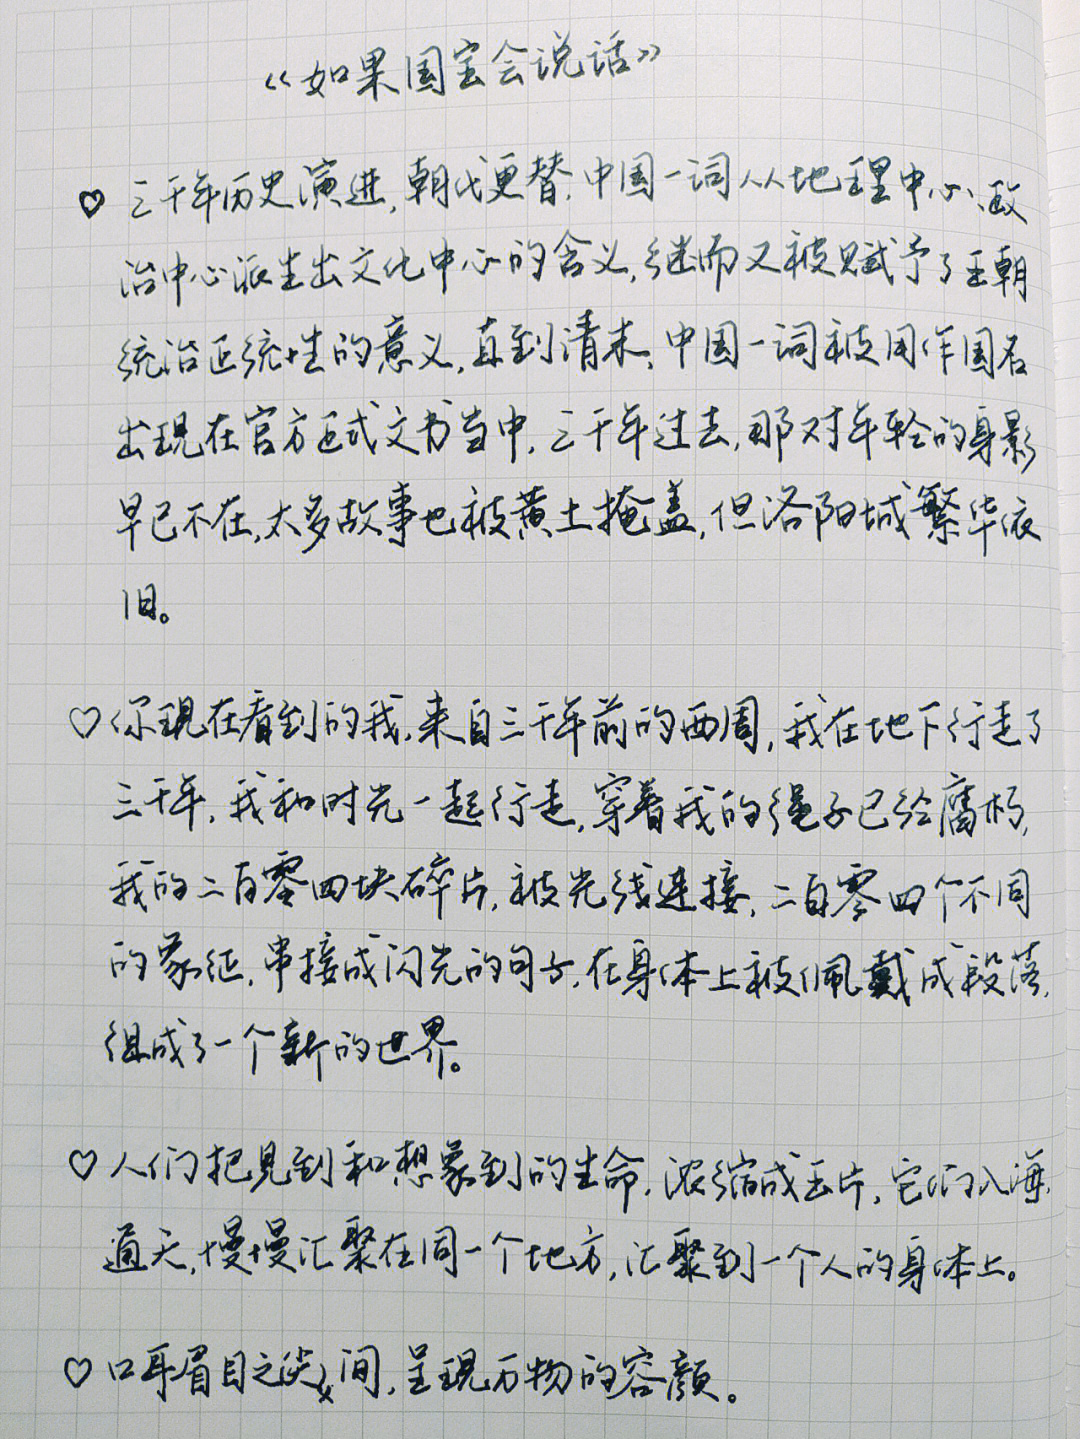 《如果国宝会说话》
♡ 三千年历史演进,朝代更替,中国一词从地理中心、政
治中心派生出文化中心的含义,继而又被赋予了王朝
统治正统性的意义,直到清末,中国一词被用作国名
出现在官方正式文书当中,三千年过去,那对年轻的身影
早已不在,太多故事也被黄土掩盖,但洛阳城繁华依
旧。
♡ 你现在看到的我,来自三千年前的西周,我在地下行走了
三千年,我和时光一起行走,穿着我的绳子已经腐朽,
我的二百零四块碎片,被光线连接,二百零四个不同
的象征,串接成闪光的句子,在身体上被佩戴成段落,
组成了一个新的世界。
♡ 人们把见到和想象到的生命,浓缩成玉片,它们入海
通天,慢慢汇聚在同一个地方,汇聚到一个人的身体上。
♡ 口耳眉目之间,呈现万物的容颜。